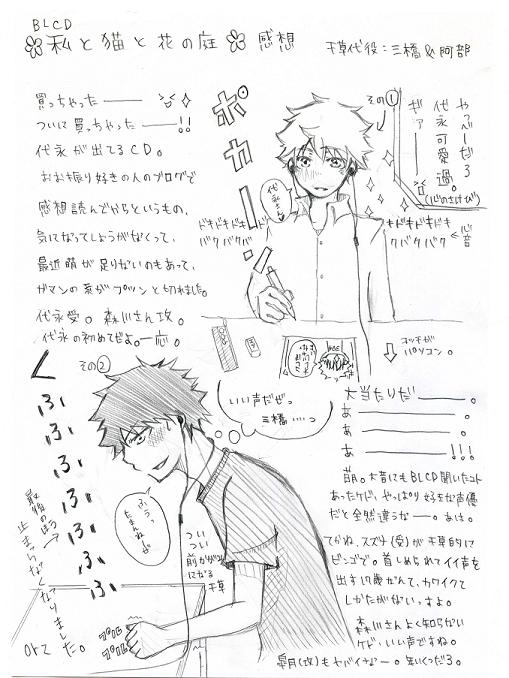 BLCD
私と猫と花の庭 感想
干草代役：三橋&阿部
買っちゃった———
ついに買っちゃった———!!
代永が出てるCD。
おお振り好きの人のブログで
感想読んでからというもの、
気になってしょうがなくって、
最近萌が足りないのもあって、
ガマンの糸がプツンと切れました。
代永受。森川さん攻。
代永の初めてぜよ。一応。
ポカーーン
その①
やっべーだろ
代永可愛過。
ギァ——
(心のさけび)
代永さん
ドキドキドキドキドキ
バクバクバク
キドキドキドキ
クバクバク
←心音
コッチが
パソコン。
その②
くふふふふふふふ
最後のほう→
止まらなくなりました。
オレ
いい声だぜっ
三橋……っ
ふうっ
たまんねぇ
ついつい
前かがみ
になる
干草
プルプル
プルプル
大当たりだ———。
あ———。
あ———。
あ———!!!
萌。大昔にもBLCD聞いたコト
あったケド、やっぱり好きな声優
だと全然違うなー。あは。
てかね、スズナ(受)が干草的に
ビンゴで。首しめられてイイ声を
出す17歳なんて、カワイクて
しかたがないっすよ。
森川さんよく知らない
ケド、いい声ですね。
皐月(攻)もヤバイなー。年いくつだろ。